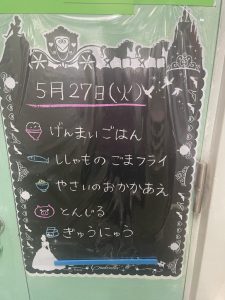 5月27日(火)
げんまいごはん
ししゃものごまフライ
やさいのおかかあえ
とんじる
ぎゅうにゅう